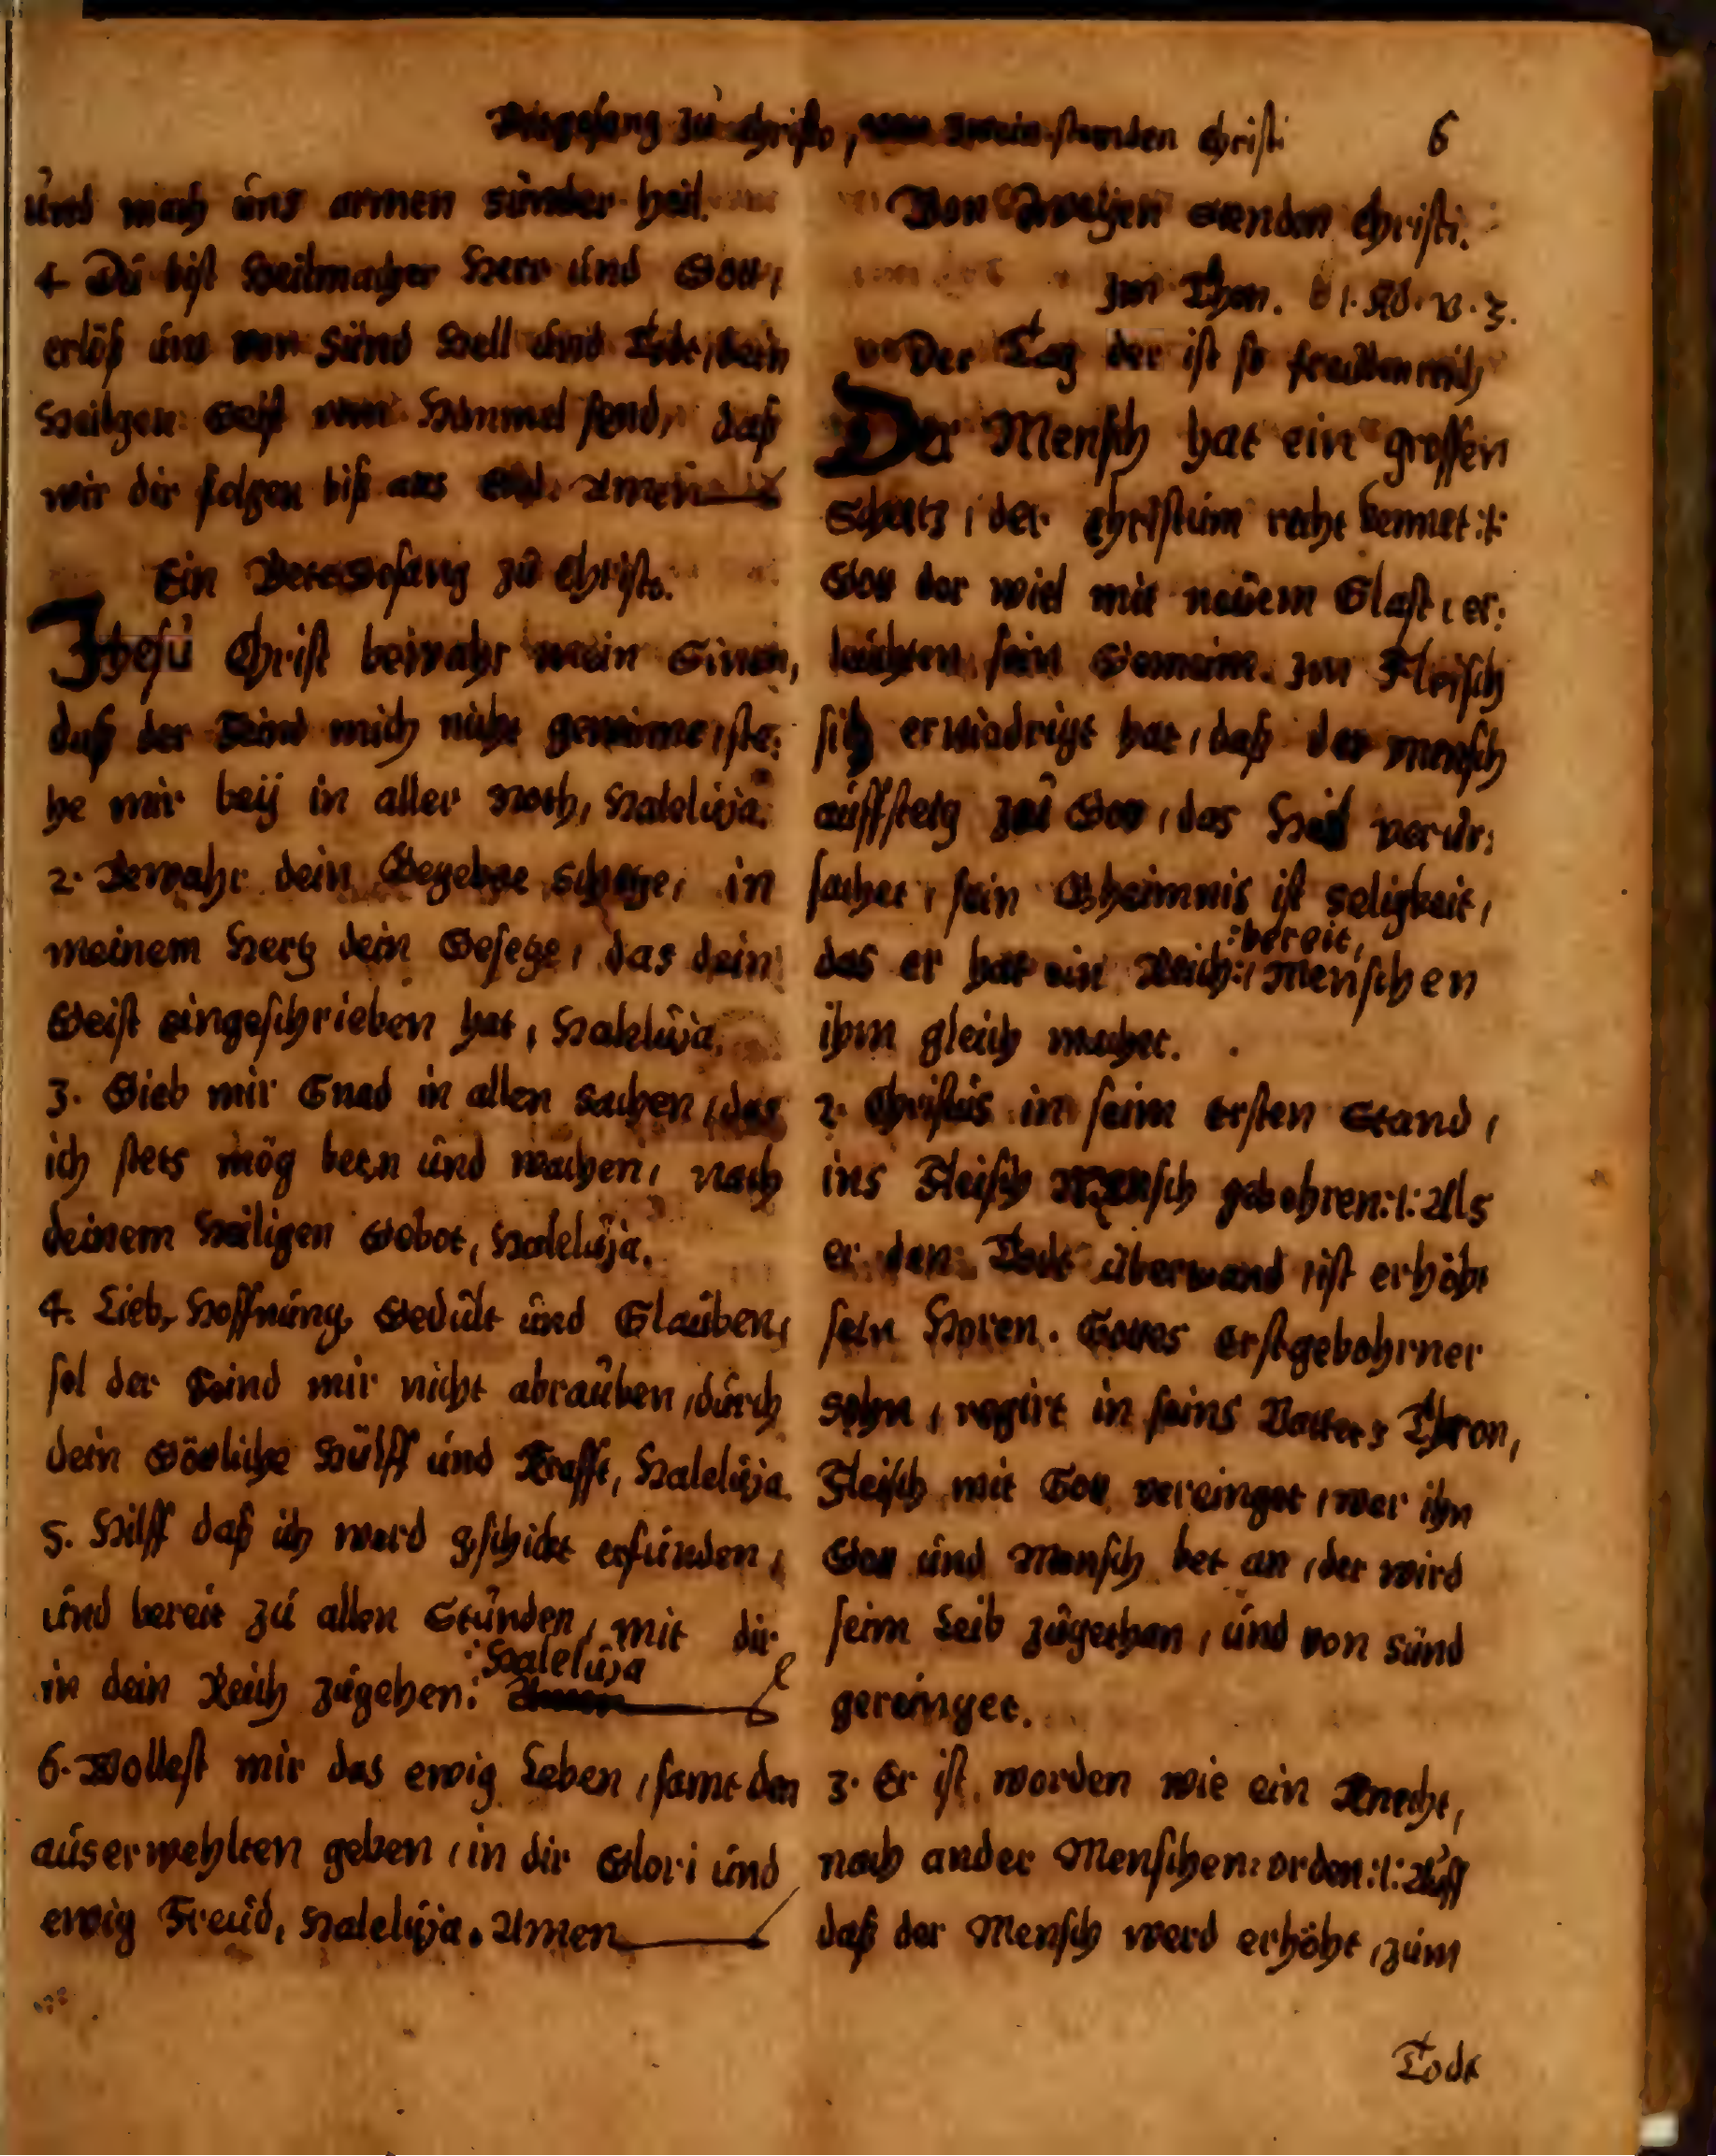 Betgesang zu Christo, von zwein standen Christi 6
und mach uns armen sünder heil.
4 Du bist Heilmacher Herr und Gott,
erlöß uns von Sünd Hell und Tode, dein
Heilgen Geist vom Himmel send, daß
wir dir folgen biß ans End. Amen
Ein Betegesang zu Christo.
Jhesu Christ bewahr mein Sinen,
daß der Feind mich nicht gewinne, ste⸗
he mir beÿ in aller Noth, Haleluja.
2. Bewahr dein Gegebne Schetze, in
meinem Hertz dein Gesetze, das dein
Geist eingeschrieben hat, Haleluja.
3. Gieb mir Gnad in allen Sachen, das
ich stets mög betn und wachen, nach
deinem Heiligen Gebot, Haleluja.
4. Lieb, Hoffnung, Gedult und Glauben,
sol der Feind mir nicht abrauben, durch
dein Götliche Hülff und Krafft, Haleluja.
5. Hilff daß ich werd gschickt erfunden,
und bereit zu allen Stunden, mit dir
in dein Reich zugehen: Haleluja
Amen
6. Wollest mir das ewig Leben, samt den
auserwehlten geben, in dir Glori und
ewig Freud, Haleluja. Amen
Von Zweÿen Stenden Christi.
Im Thon.
Der Tag der ist so freudenreich
Der Mensch hat ein grossen
Schatz, der Christum recht kennet :/:
Gott der wiel mit neuem Glast, er⸗
leuchten sein Gemein. Im Fleisch
sich erniedrigt hat, daß der Mensch
auffsteig zu Gott, das Heil verur⸗
sachet, sein Gheimnis ist seligkeit,
das er hat ein Reich :bereit, Menschen
ihm gleich machet.
2. Christus in seim ersten Stand,
ins Fleisch Mensch gebohren :/: Als
er den Tode überwand, ist erhöht
sein Horen. Gottes Erstgebohrner
Sohn, regirt in seins Vatters Thron,
Fleisch mit Gott vereinget, wer ihn
Gott und Mensch bet an, der wird
seim Leib zugethan, und von sünd
gereinget.
3. Er ist worden wie ein Knecht,
nach ander Menschen orden :/: Auff
daß der Mensch werd erhöht, zum
Tode